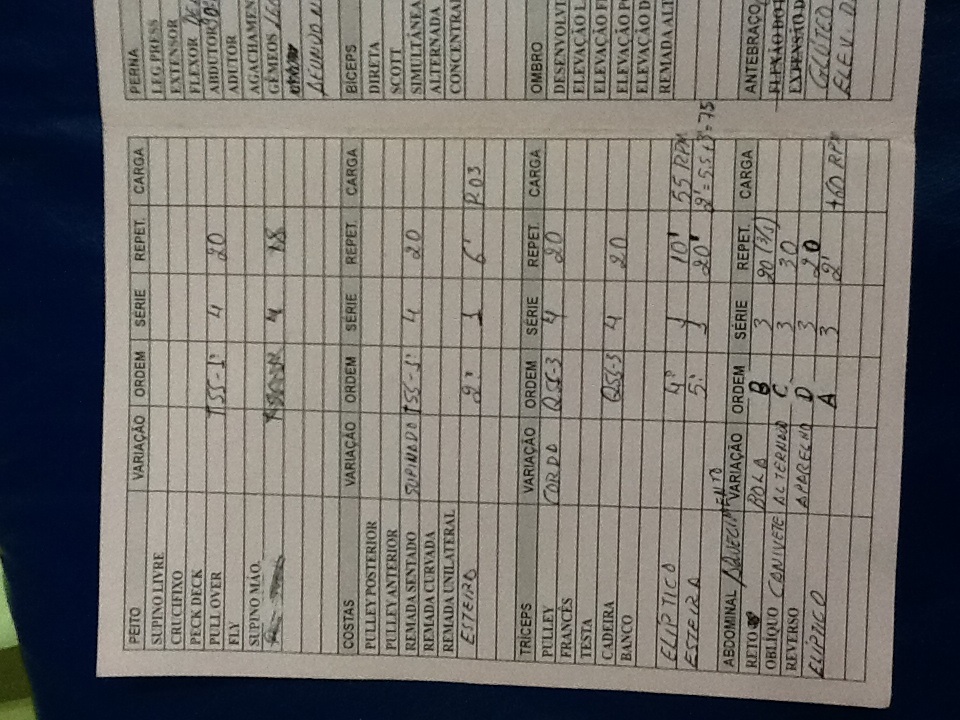 PEITO VARIAÇÃO ORDEM SÉRIE REPET. CARGA
SUPINO LIVRE
CRUCIFIXO
PECK DECK
PULL OVER TSS-1º 4 20
FLY
SUPINO MÁQ. 4 18
COSTAS VARIAÇÃO ORDEM SÉRIE REPET. CARGA
PULLEY POSTERIOR
PULLEY ANTERIOR
REMADA SENTADO SUPINADO TSS-1º 4 20
REMADA CURVADA
REMADA UNILATERAL
ESTEIRA 2º 1 6' P.03
TRÍCEPS VARIAÇÃO ORDEM SÉRIE REPET. CARGA
PULLEY CORDA QSS-3 4 20
FRANCÊS
TESTA
CADEIRA QSS-3 4 20
BANCO
ELIPTICO 4º 1 10' 55 RPM
ESTEIRA 5º 1 20'
ABDOMINAL / AQUECIMENTO VARIAÇÃO ORDEM SÉRIE REPET. CARGA
RETO BOLA B 3 20 (3/1)
OBLÍQUO CANIVETE ALTERNADO C 3 30
REVERSO APARELHO D 3 20
ELIPTICO A 3 2' +60 RPM
PERNA
LEG PRESS
EXTENSOR
FLEXOR
ABDUTOR
ADUTOR
AGACHAMEN
GÊMEOS
BÍCEPS
DIRETA
SCOTT
SIMULTÂNEA
ALTERNADA
CONCENTRA
OMBRO
DESENVOLVI
ELEVAÇÃO L
ELEVAÇÃO F
ELEVAÇÃO P
ELEVAÇÃO D
REMADA ALT
ANTEBRAÇO
FLEXÃO DO
EXPENSÃO D
GLÚTEO
ELEV. D